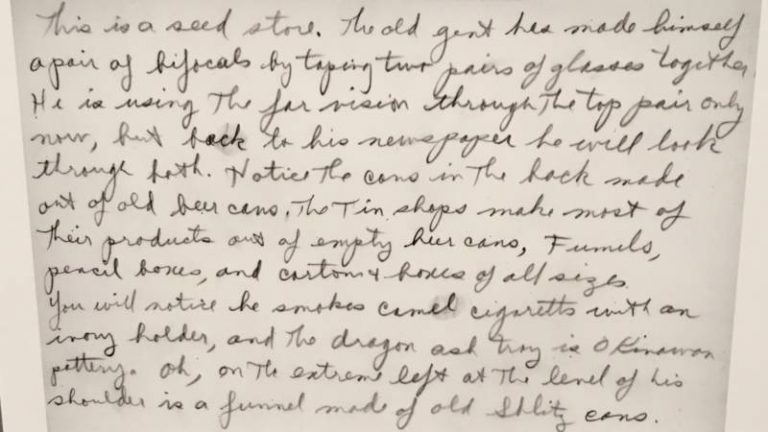 This is a seed store. The old gent has made himself
a pair of bifocals by taping two pairs of glasses together.
He is using the far vision through the top pair only
now, but back to his newspaper he will look
through both. Notice the cans in the back made
out of old beer cans. The Tin shops make most of
their products out of empty beer cans, Funnels,
pencil boxes, and cartons & boxes of all sizes.
You will notice he smokes camel cigaretts with an
ivory holder, and the dragon ash tray is Okinawan
pottery. Oh, on the extreme left at the level of his
shoulder is a funnel made of old Shlitz cans.